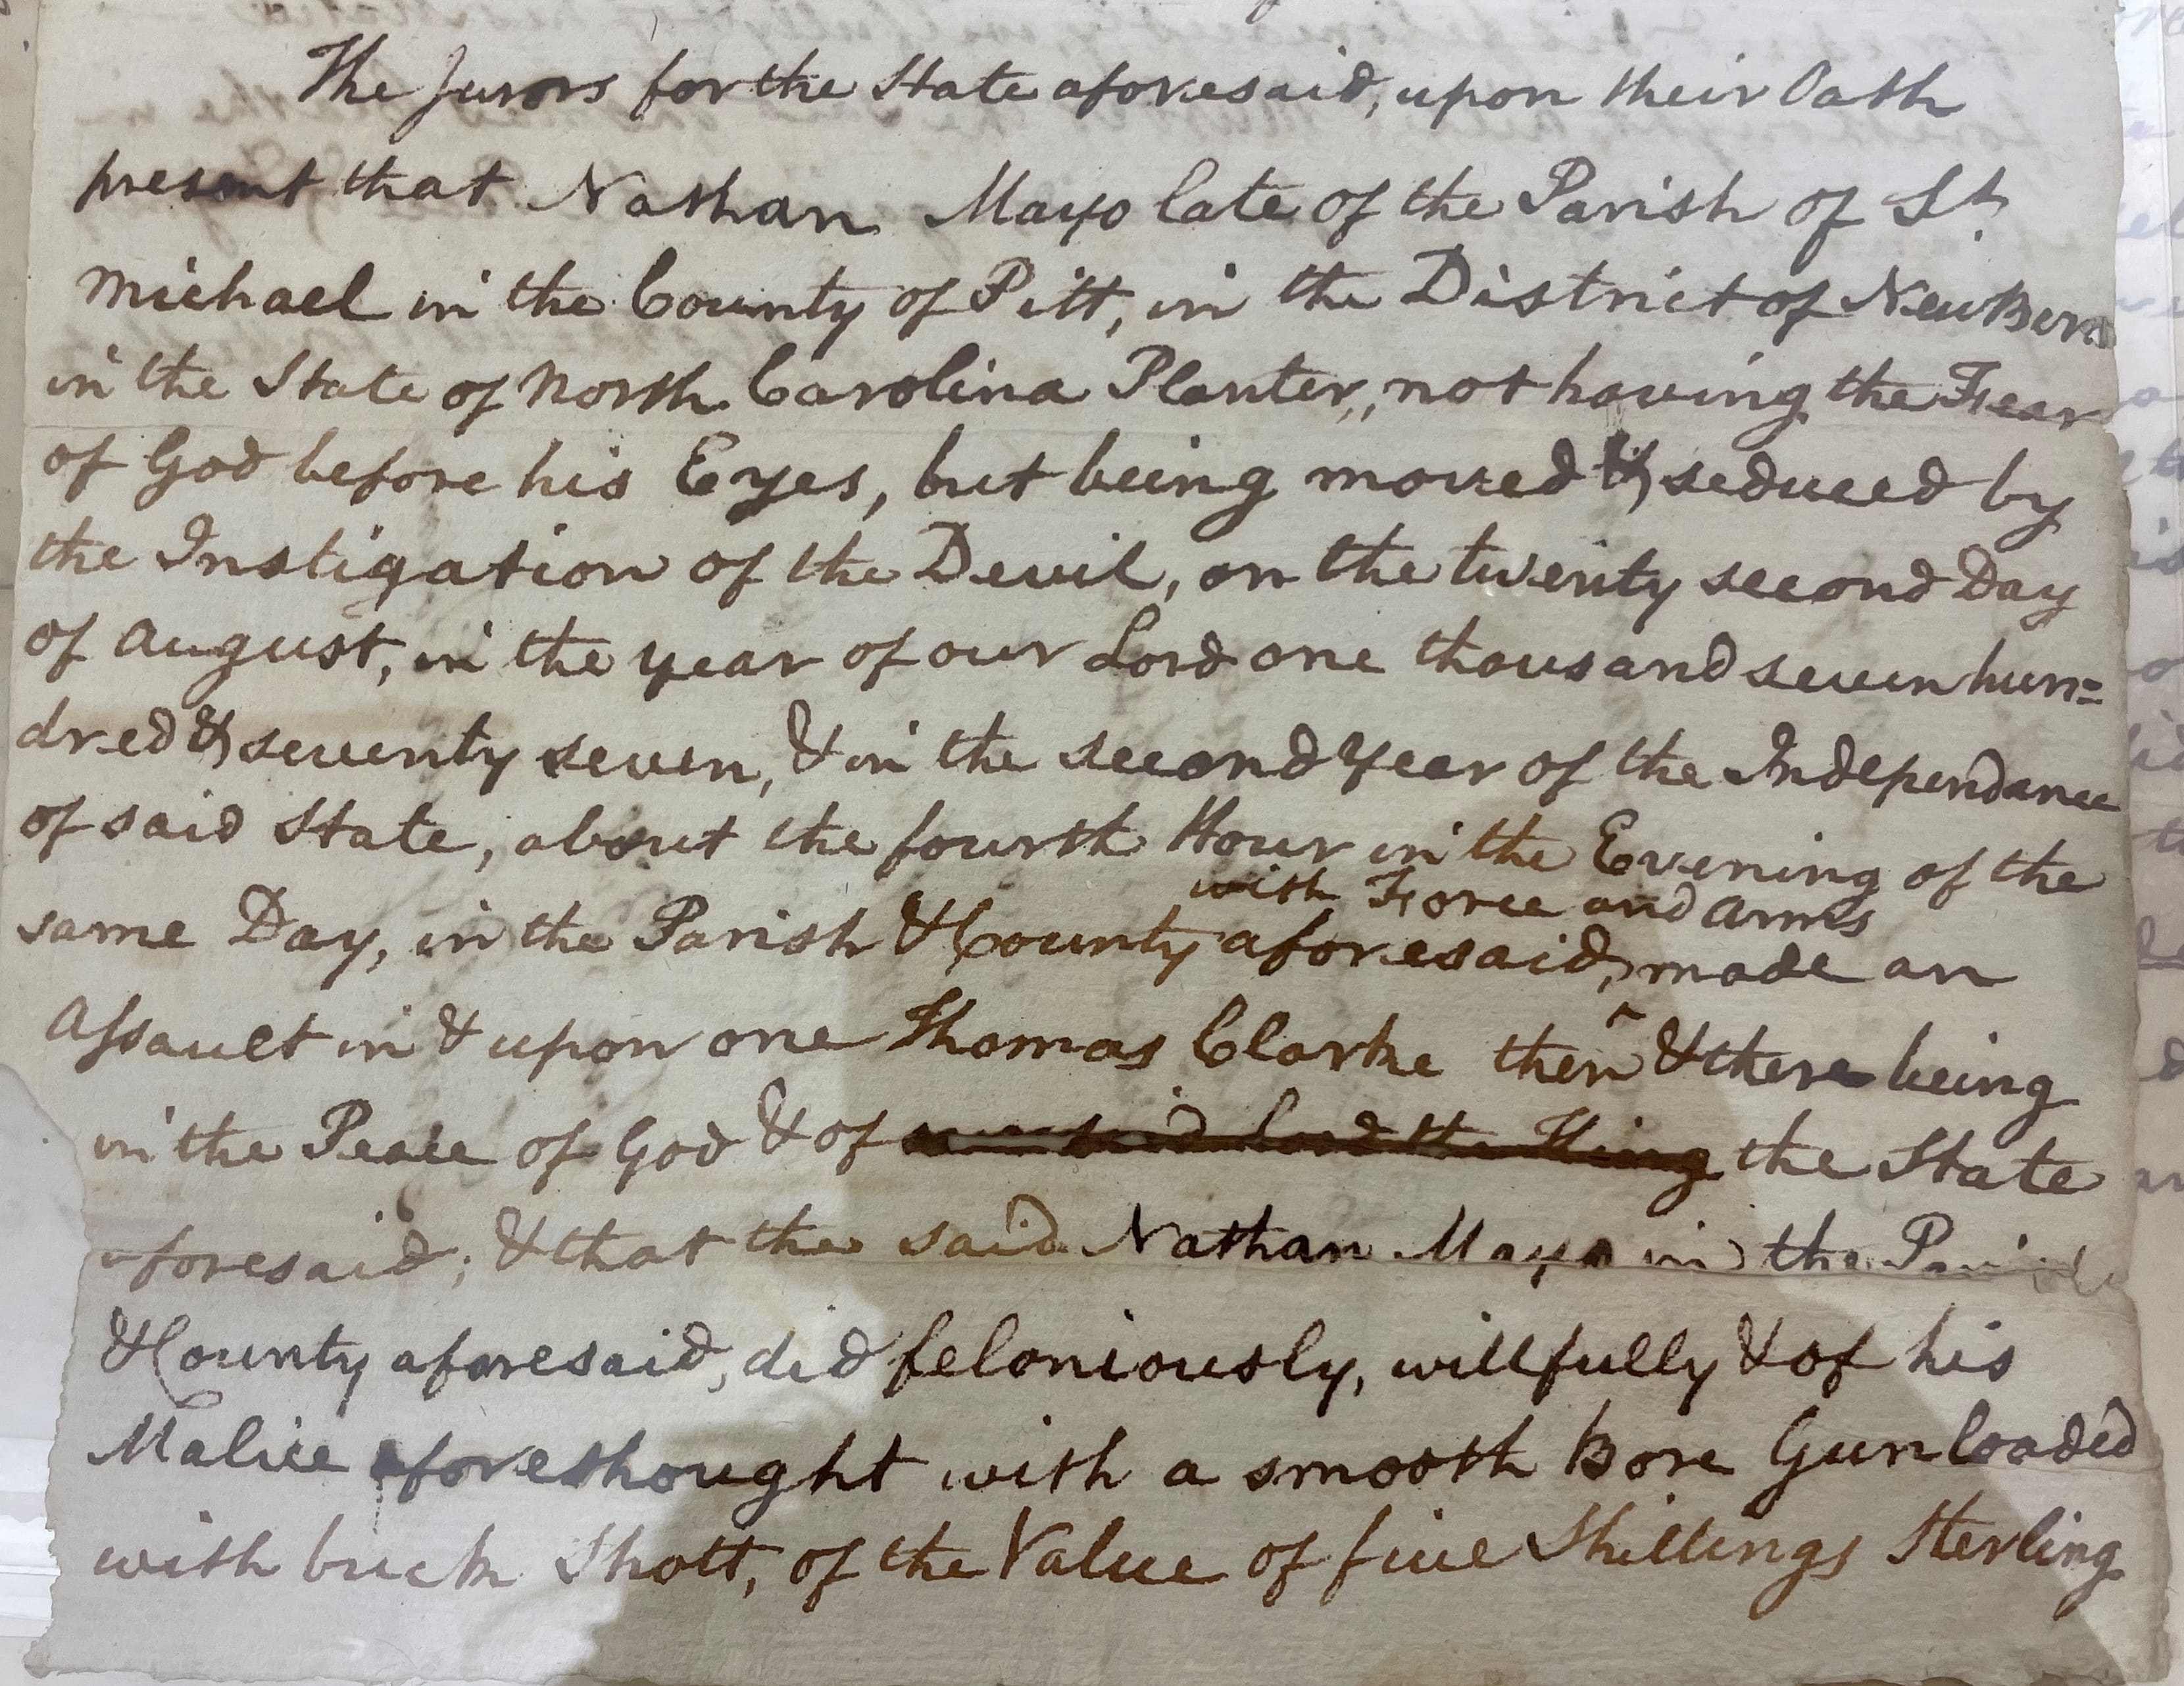 The Jurors for the State aforesaid, upon their Oath
present that Nathan Mayo late of the Parish of St.
Michael in the County of Pitt, in the District of NewBern
in the State of North Carolina Planter, not having the Fear
of God before his Eyes, but being moved & seduced by
the Instigation of the Devil, on the twenty second Day
of August, in the year of our Lord one thousand seven hun=
dred & seventy seven, & in the second Year of the Independance
of said State, about the fourth Hour in the Evening of the
with Force and Arms
same Day, in the Parish & County aforesaid, made an
Assault in & upon one Thomas Clarke then & there being
in the Peace of God & of our said Lord the King the State
aforesaid; & that the said Nathan Mayo in the Parish
& County aforesaid, did feloniously, willfully & of his
Malice aforethought with a smooth Bore Gun loaded
with buck Shott, of the Value of five Shillings Sterling